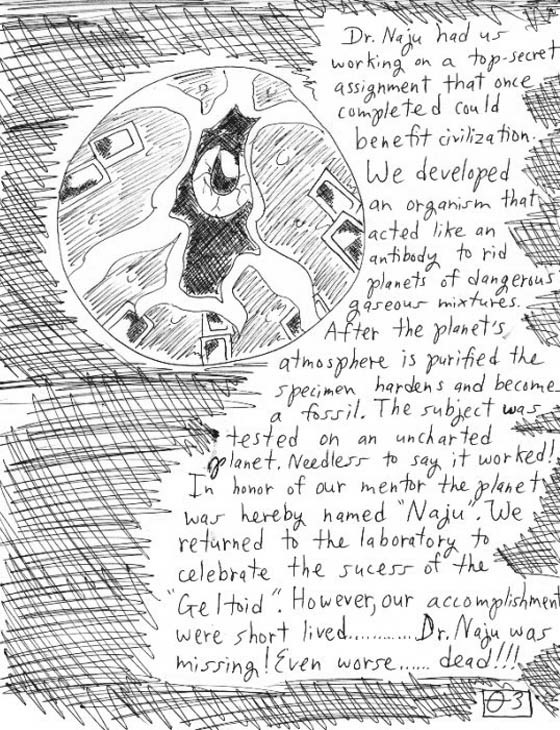 Dr. Naju had us
working on a top-secret
assignment that once
completed could
benefit civilization.
We developed
an organism that
acted like an
antibody to rid
planets of dangerous
gaseous mixtures.
After the planet's
atmosphere is purified the
specimen hardens and become
a fossil. The subject was
tested on an uncharted
planet. Needless to say it worked!
In honor of our mentor the planet
was hereby named "Naju". We
returned to the laboratory to
celebrate the sucess of the
"Geltoid". However, our accomplishment
were short lived............ Dr. Naju was
missing! Even worse...... dead!!!
03